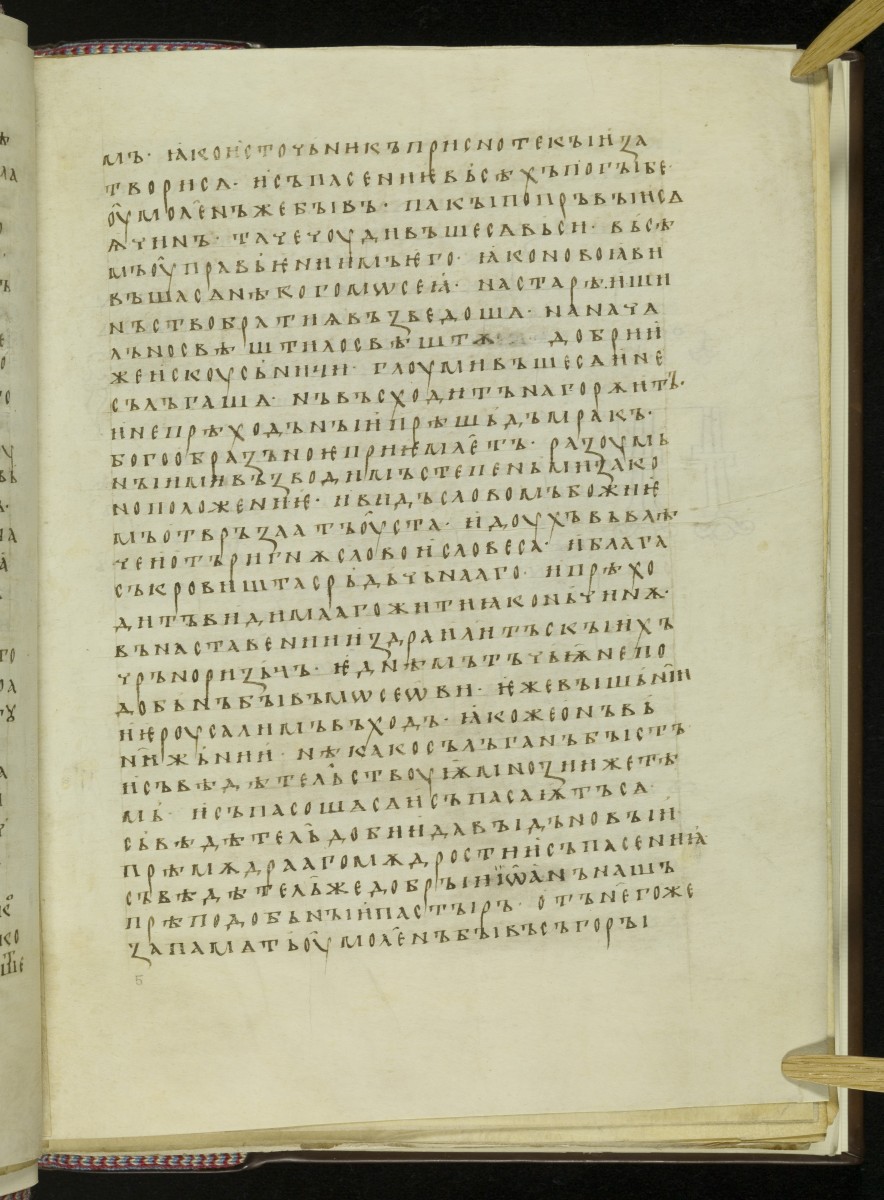 мъ· ꙗко источьникъ присно текыи за
творисѧ· и съпасению вьсѣхъ погыбе
оумоленъ же бывъ· пакы по пръвыи сѧ
ѩ чинъ· таче чоудивъше сѧ вьси· вьсѣ
мь оуправьѥниимь ѥго· ꙗко новоꙗви
въша сѧ нѣкого мѡсеꙗ· на старѣиши
нъство братиѩ възведоша· на нача
льно свѣштило свѣштѫ добрии
женскоу сьничи· глоумивъше сѧ и не
сълъгаша· нъ въсходитъ на горѫ и тъ·
и не прѣходьныи прѣшьдъ мракъ·
богообразьноѥ приѥмлетъ· разоумь
ныими възводимъ степеньми зако
ноположениѥ· и видъ словомъ божиѥ
мь отвръзлатъ оуста· и доухъ въвлѣ
че и отъригнѫ слово и словеса· и блага
съкровишта срьдьчьнааго· и прѣхо
дитъ видимааго житиꙗ коньчинѫ·
въ наставении израилитъскыихъ
чръноризьчь· ѥднѣмь тъчьѭ не по
добьнъ бывъ мѡсеѡви· ѥже вышьнии
иѥроусалимъ въходъ· ꙗкоже онъ вь
нижьнии· нѣкако сълъганъ быстъ
и съвѣдѣтельствоуѭ мнози иже тѣ
мь· и съпасоша сѧ и съпасаѭтъ сѧ·
сьвѣдѣтель добии давыдъ новыи
прѣмѫдрааго мѫдрости и съпасениꙗ
съвѣдѣтель же добрыи иѡанъ нашъ
прѣподобьныи пастырь· отъ негоже
за памѧть оумоленъ бывъ съ горы
5